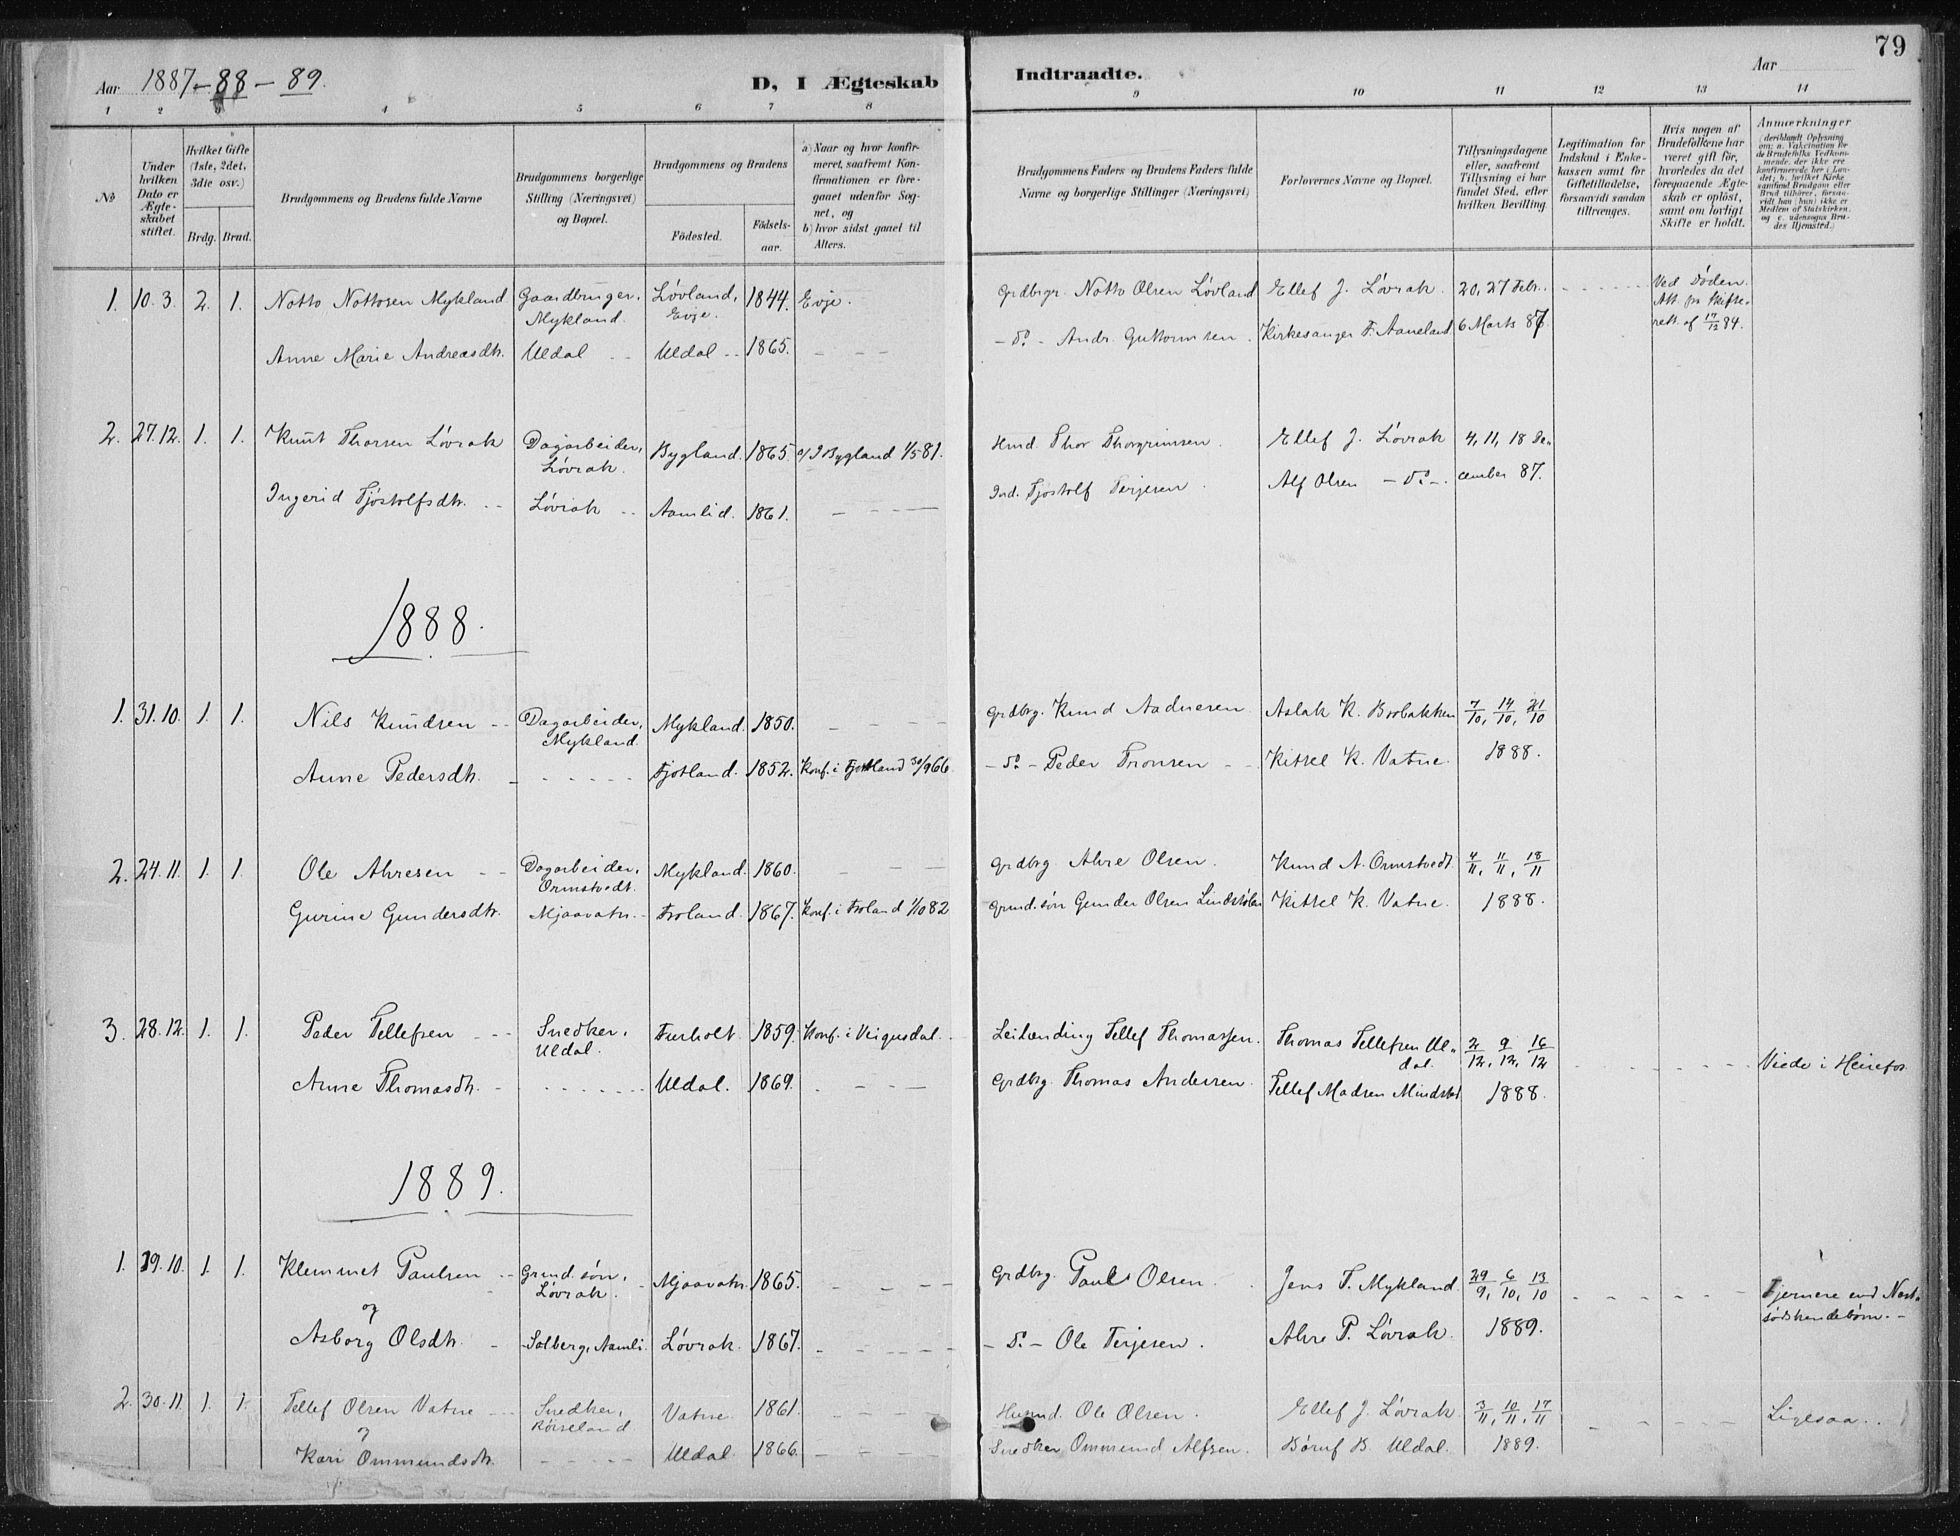 79
Aar 1887-88-89.
D, I Ægteskab Indtraadte.
Aar
1 2 3 4 5 6 7 8 9 10 11 12 13 14
No
Under hvilken Dato er Ægteskabet stiftet.
Hvilket Gifte (1ste, 2det, 3die osv.)
Brdg. Brud.
Brudgommens og Brudens fulde Navne
Brudgommens borgerlige Stilling (Næringsvei) og Bopæl.
Brudgommens og Brudens
Fødested. Fødsels-aar.
a) Naar og hvor konfirmeret, saafremt Konfirmationen er foregaaet udenfor Sognet, og
b) hvor sidst gaaet til Alters.
Brudgommens Faders og Brudens Faders fulde Navne og borgerlige Stillinger (Næringsvei)
Forlovernes Navne og Bopæl.
Tillysningsdagene eller, saafremt Tillysning ei har fundet Sted, efter hvilken Bevilling.
Legitimation for Indskud i Enkekassen samt for Giftetilladelse, forsaavidt saadan tiltrænges.
Hvis nogen af Brudefolkene har været gift før, hvorledes da det foregaaende Ægteskab er opløst, samt om lovligt Skifte er holdt.
Anmærkninger
1. 10.3. 2. 1. Notto Nottosen Mykland Gaardbruger, Mykland. Løvland, Evje. 1844. Evje. Grdbrgr. Notto Olsen Løvland Ellef J. Løvrak. 20, 27 Febr. Ved Døden. Att. fra Skifterett. af 17/12 84.
Anne Marie Andreasdtr. Uldal Uldal 1865. - do - Andr. Guttormsen. Kirkesanger F. Aaneland 6 Marts 87
2. 27.12. 1. 1. Knut Thorsen Løvrak Dagarbeider, Løvrak. Bygland. 1865. a/ I Bygland 1/5 81. Hmd. Thor Thorgrimsen. Ellef J. Løvrak 4, 11, 18 De-
Ingerid Tjøstolfsdtr. Løvrak Aamlid. 1861. Ind. Tjøstolf Terjesen. Alf Olsen - do -. cember 87.
1888.
1. 31.10. 1. 1. Nils Knudsen Dagarbeider, Mykland. Mykland. 1850. Grdbrg. Knud Aadnesen Aslak K. Brobakken 7/10, 14/10, 21/10
Anne Pedersdtr. Fjotland. 1852. Konf. i Fjotland 30/9 66. - do - Peder Tronsen Kittel K. Vatne. 1888.
2. 24.11. 1. 1. Ole Ahresen Dagarbeider, Ormstvedt. Mykland. 1860. Grdbrg Ahre Olsen. Knud A. Ormstvedt. 4/11, 11/11, 18/11
Gurine Gundersdtr. Mjaavatn. Froland. 1867. Konf. i Froland 1/10 82 Grmd.søn Gunder Olsen Lindstølen Kittel K. Vatne. 1888.
3. 28.12. 1. 1. Peder Tellefsen Snedker, Uldal. Furholt. 1859. Konf. i Veigusdal. Leilænding Tellef Thomassen. Thomas Tellefsen Uldal. 2/12, 9/12, 16/12 Viede i Heirefos
Anne Thomasdtr. Uldal. 1869. Grdbrg. Thomas Andersen. Tellef Madsen Mindrebø 1888.
1889.
1. 19.10. 1. 1. Klemmet Paulsen Grmd.søn, Løvrak. Mjaavatn. 1865. Grdbrg. Paul Olsen Jens T. Mykland. 29/9, 6/10, 13/10 Fjernere end Næst-
og
Asborg Olsdtr. Solberg, Aamli. Løvrak. 1867. - do - Ole Terjesen. Ahre P. Løvrak. 1889. sødskendebørn.
2. 30.11. 1. 1. Tellef Olsen Vatne Snedker, Røiseland. Vatne 1861. Husmd. Ole Olsen. Ellef J. Løvrak. 3/11, 10/11, 17/11 Ligesaa.
og
Kari Ommundsdtr. Uldal 1866. Snedker Ommund Alfsen. Børuf B. Uldal. 1889.